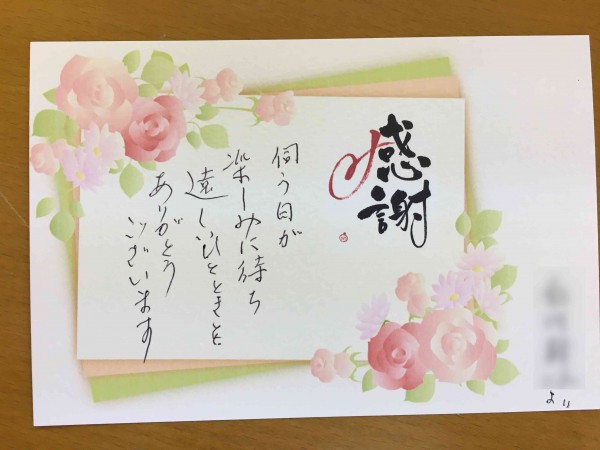 感謝
伺う日が
楽しみに待ち
遠しいひとときを
ありがとう
ございます
より